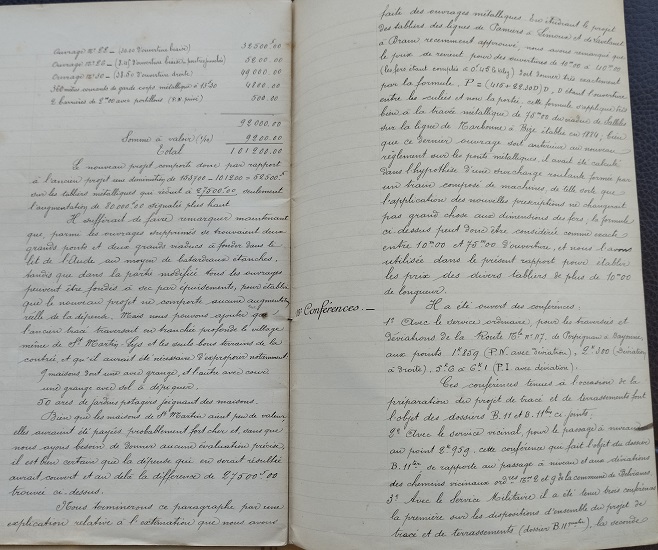 Ouvrage Nº 28 — (10.00 d'ouverture biaise) 38500.00
5800.00
Ouvrage Nº 30 — (38.50 d'ouverture droite) 49000.00
mètres courants de garde corps métallique à 4800.00
2 barrières de 2m00 avec portillons (P.N. privé) 500.00
92000.00
Somme à valoir (1/10) 9200.00
Total 101200.00
Le nouveau projet comporte donc par rapport
à l'ancien projet une diminution de 153700 — 101200 = 52500f
sur les tabliers métalliques qui réduit à 27500.00 seulement
l'augmentation de 80000.00 signalée plus haut.
Il suffirait de faire remarquer maintenant
que, parmi les ouvrages supprimés se trouvaient deux
grands ponts et deux grands viaducs à fonder dans le
lit de l'Aude au moyen de batardeaux étanches,
tandis que dans la partie modifiée tous les ouvrages
peuvent être fondés à sec par épuisements, pour établir
que le nouveau projet ne comporte aucune augmentation
réelle de la dépense. Mais nous pouvons ajouter que
l'ancien tracé traversait en tranchée profonde le village
même de St Martin-Lys et les seuls bons terrains de la
contrée et qu'il aurait été nécessaire d'exproprier notamment:
9 maisons dont une avec grange, et l'autre avec cour
une grange avec sol à dépiquer.
50 ares de jardins potagers joignant des maisons.
Bien que les maisons de St Martin aient peu de valeur
elles auraient été payées probablement fort cher et sans que
nous ayons besoin de donner aucune évaluation précise,
il est bien certain que la dépense qui en serait résultée
aurait couvert et au delà la différence de 27500f00
trouvée ci dessus.
Nous terminerons ce paragraphe par une
explication relative à l'estimation que nous avons
faite des ouvrages métalliques. En étudiant le projet
des tabliers des lignes de Pamiers à Limoux et de Lavelanet
à Bram récemment approuvé, nous avons remarqué que
le prix de revient pour des ouvertures de 10m00 à 40m00
(les fers étant comptés à 0f45 le kilog) était donné très exactement
par la formule P = (415 + 22.50 D) D, D étant l'ouverture
entre les culées et non la portée; cette formule s'applique très
bien à la travée métallique de 75m00 du viaduc de
sur la ligne de Narbonne à Bize établie en 1884; bien
que ce dernier ouvrage soit antérieur au nouveau
règlement sur les ponts métalliques il avait été calculé
dans l'hypothèse d'une surcharge roulante formée par
un train composé de machines de telle sorte que
l'application des nouvelles prescriptions ne changerait
pas grand chose aux dimensions des fers; la formule
ci dessus peut donc être considérée comme exacte
entre 10m00 et 75m00 d'ouverture, et nous l'avons
utilisée dans le présent rapport pour établir
les prix des divers tabliers de plus de 10m00
de longueur.
Conférences. — Il a été ouvert des conférences:
1º Avec le service ordinaire, pour les traverses et
déviations de la Route Nle Nº 117, de Perpignan à Bayonne,
aux points 1k859 (P.N. avec déviation), 2k300 (Déviation
à droite), 5k6 à 6k1 (P.I. avec déviation).
Ces conférences tenues à l'occasion de la
préparation du projet de tracé et de terrassements font
l'objet des dossiers B.11 et B.11bis ci joints.
2º Avec le service vicinal, pour le passage à niveau
au point 2k959, cette conférence qui fait l'objet du dossier
B.11ter, se rapporte au passage à niveau et aux déviations
des chemins vicinaux ordres Nos 2 et 9 de la commune de Belvianes.
3º Avec le Service Militaire il a été tenu trois conférences
la première sur les dispositions d'ensemble du projet de
tracé et de terrassements (dossier B.11quater), la seconde